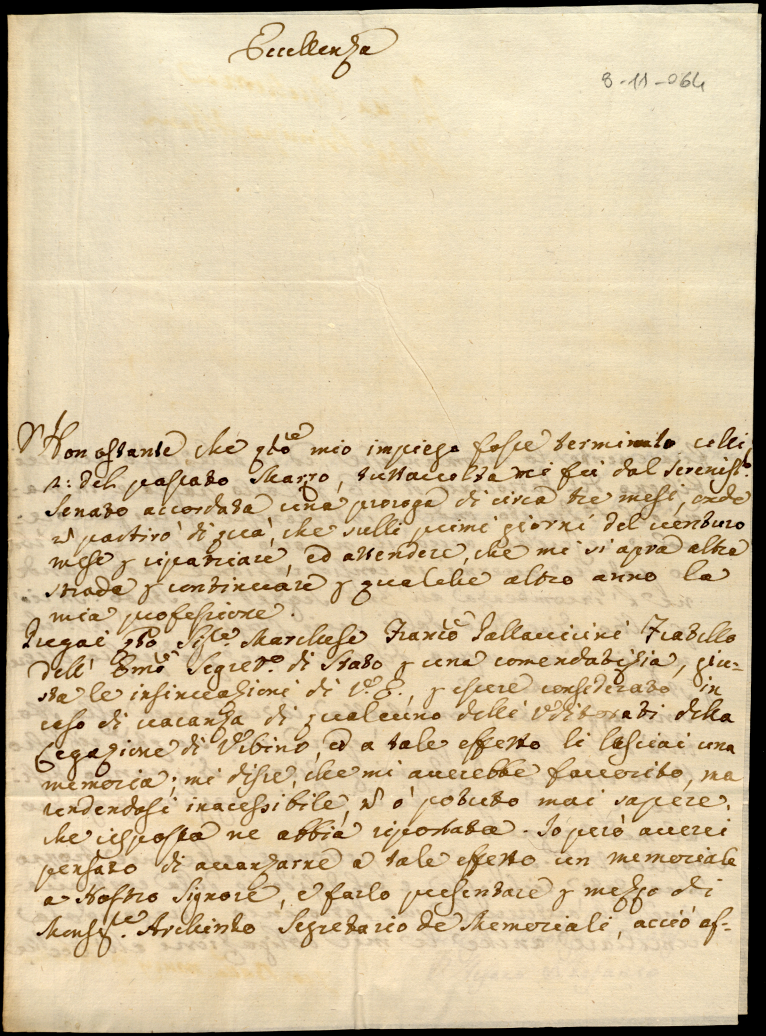 Eccellenza
8-11-064
Non ostante, che qsto mio impiego fosse terminato colli
2: del passato Marzo, tuttavolta mi fù dal Sereniss.o
Senato accordata una proroga di circa tre mesi, onde
ñ partirò di quà, che sulli primi giorni del venturo
mese p ripatriare, ed attendere, che mi si apra altra
strada p continuare p qualche altro anno la
mia professione.
Pregai qsto Sig.re Marchese Franc.o Pallavicini Fratello
dell' Emo Segret.o di Stato p una comendatizia, giu-
sta le insinuazioni di V.E., p essere considerato in
caso di vacanza di qualcuno delli Uditorati della
Legazione di Urbino, ed a tale effetto li lasciai una
memoria; mi disse, che mi averebbe favorito, ma
rendendosi inacessibile, ñ ò potuto mai sapere,
che risposta ne abbia riportata. Io però averei
pensato di avanzarne a tale effetto un memoriale
a Nostro Signore, e farlo presentare p mezzo di
Monsig.re Archinto Segretario de Memoriali, acciò as-